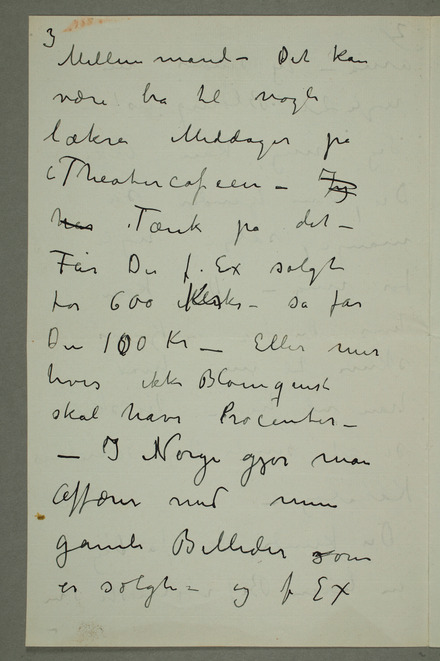 3
Mellemmand – Det kan
være bra til nogle
lækre Middager på
Theatercafeen – Jeg
har Tænk på det –
Får Du f. Ex solgt
for 600 Kr – så får
Du 100 Kr – Eller mer
hvis ikke Blomqvist
skal have Procenter –
– I Norge gjør man
Affærer med mine
gamle Billeder som
er solgt – og f Ex